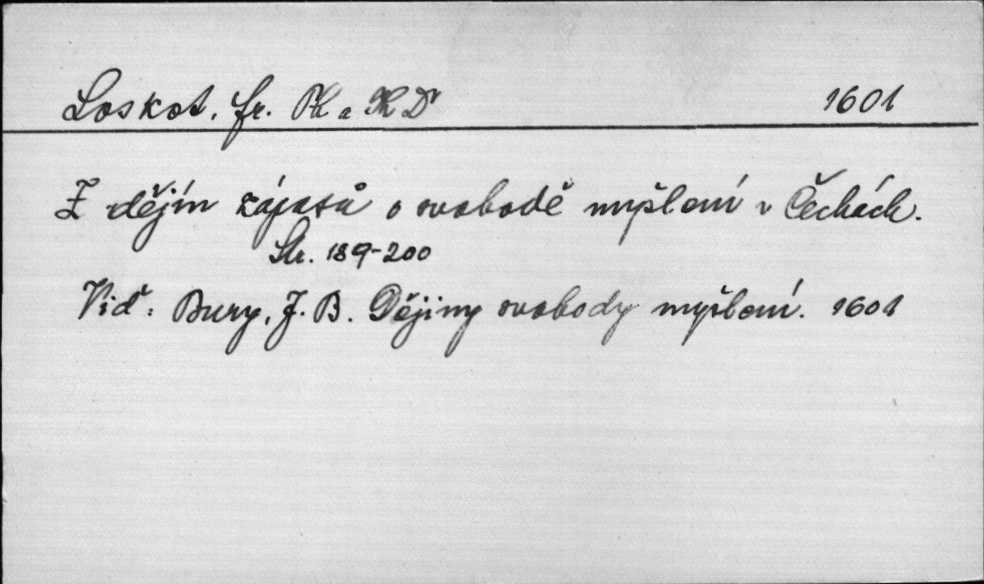 Loskot, Fr. Ph a Th Dr 1601
Z dějin zápasů o svobodě myšlení v Čechách.
Str. 189-200
Viď: Bury, J. B. Dějiny svobody myšlení. 1601